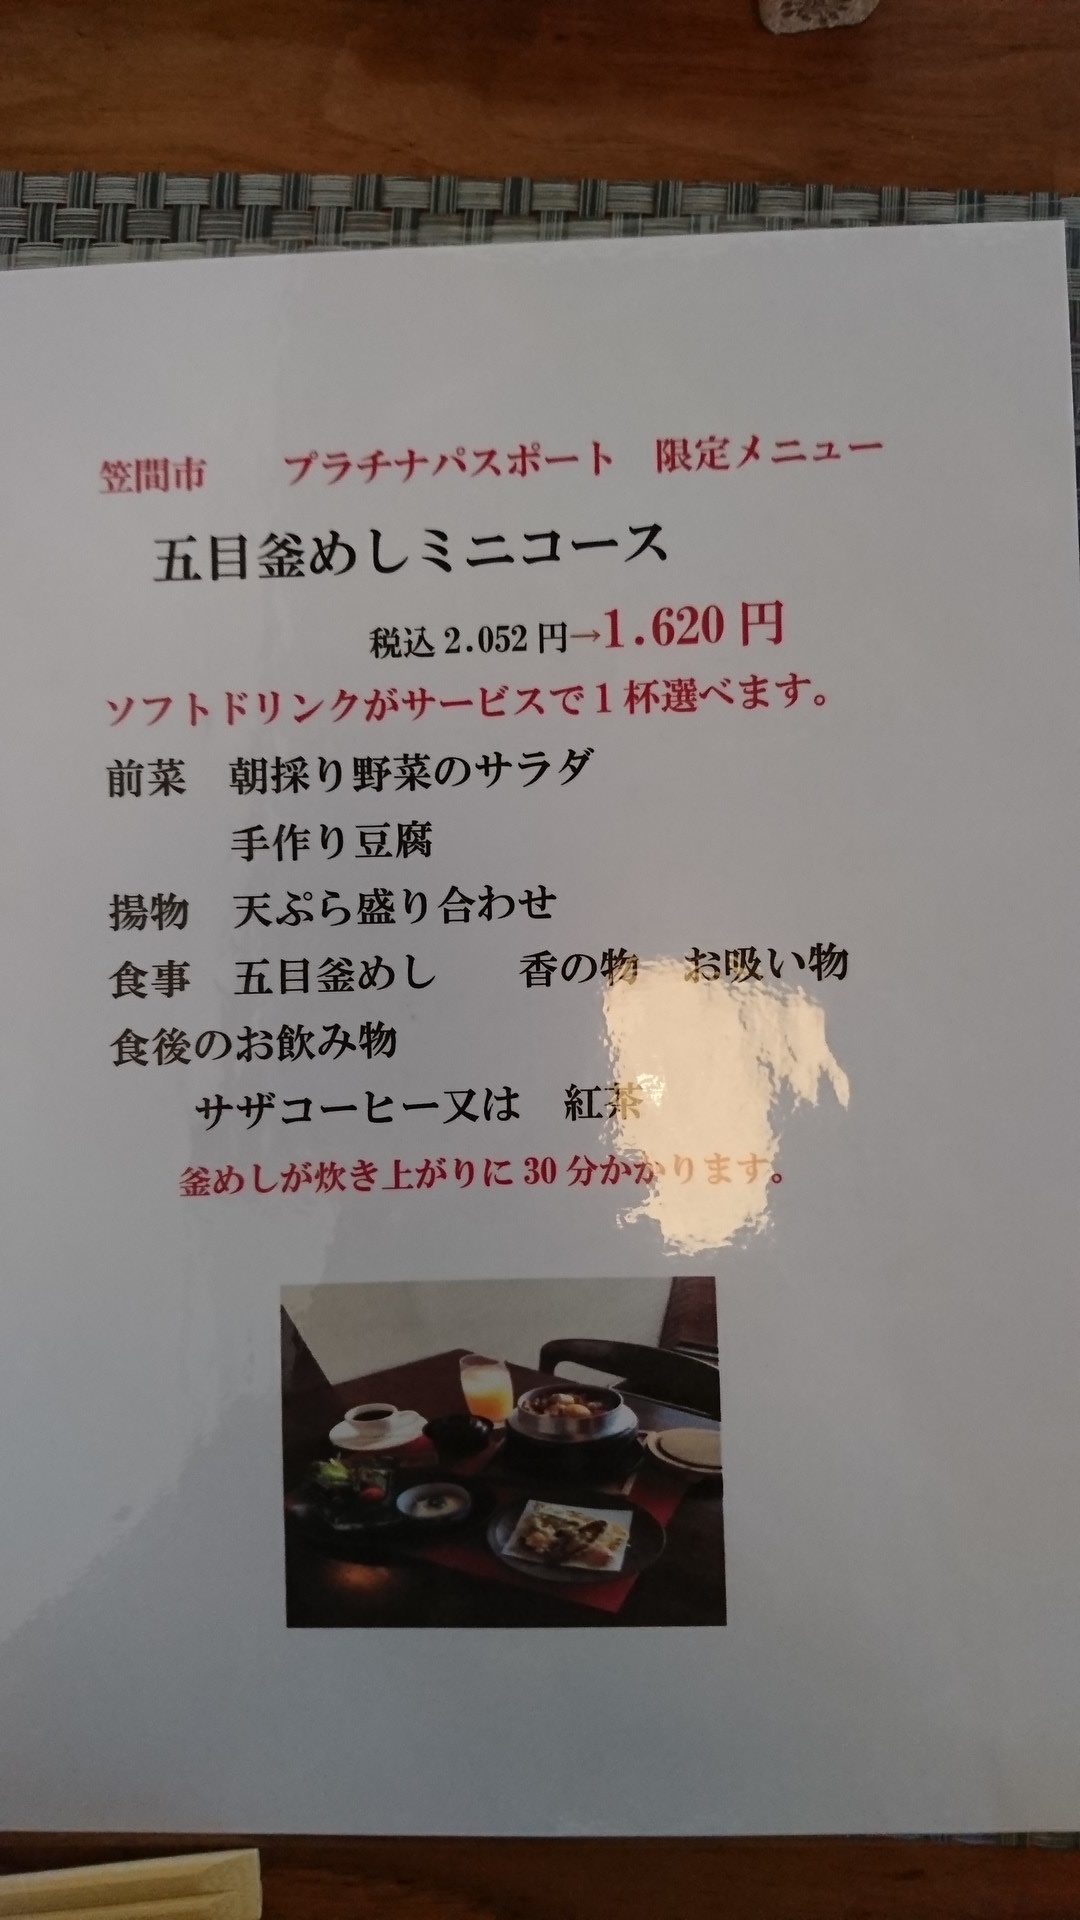 笠間市　　プラチナパスポート　限定メニュー
五目釜めしミニコース
税込2.052円→1.620円
ソフトドリンクがサービスで1杯選べます。
前菜　朝採り野菜のサラダ
手作り豆腐
揚物　天ぷら盛り合わせ
食事　五目釜めし　　香の物　お吸い物
食後のお飲み物
サザコーヒー又は　紅茶
釜めしが炊き上がりに30分かかります。